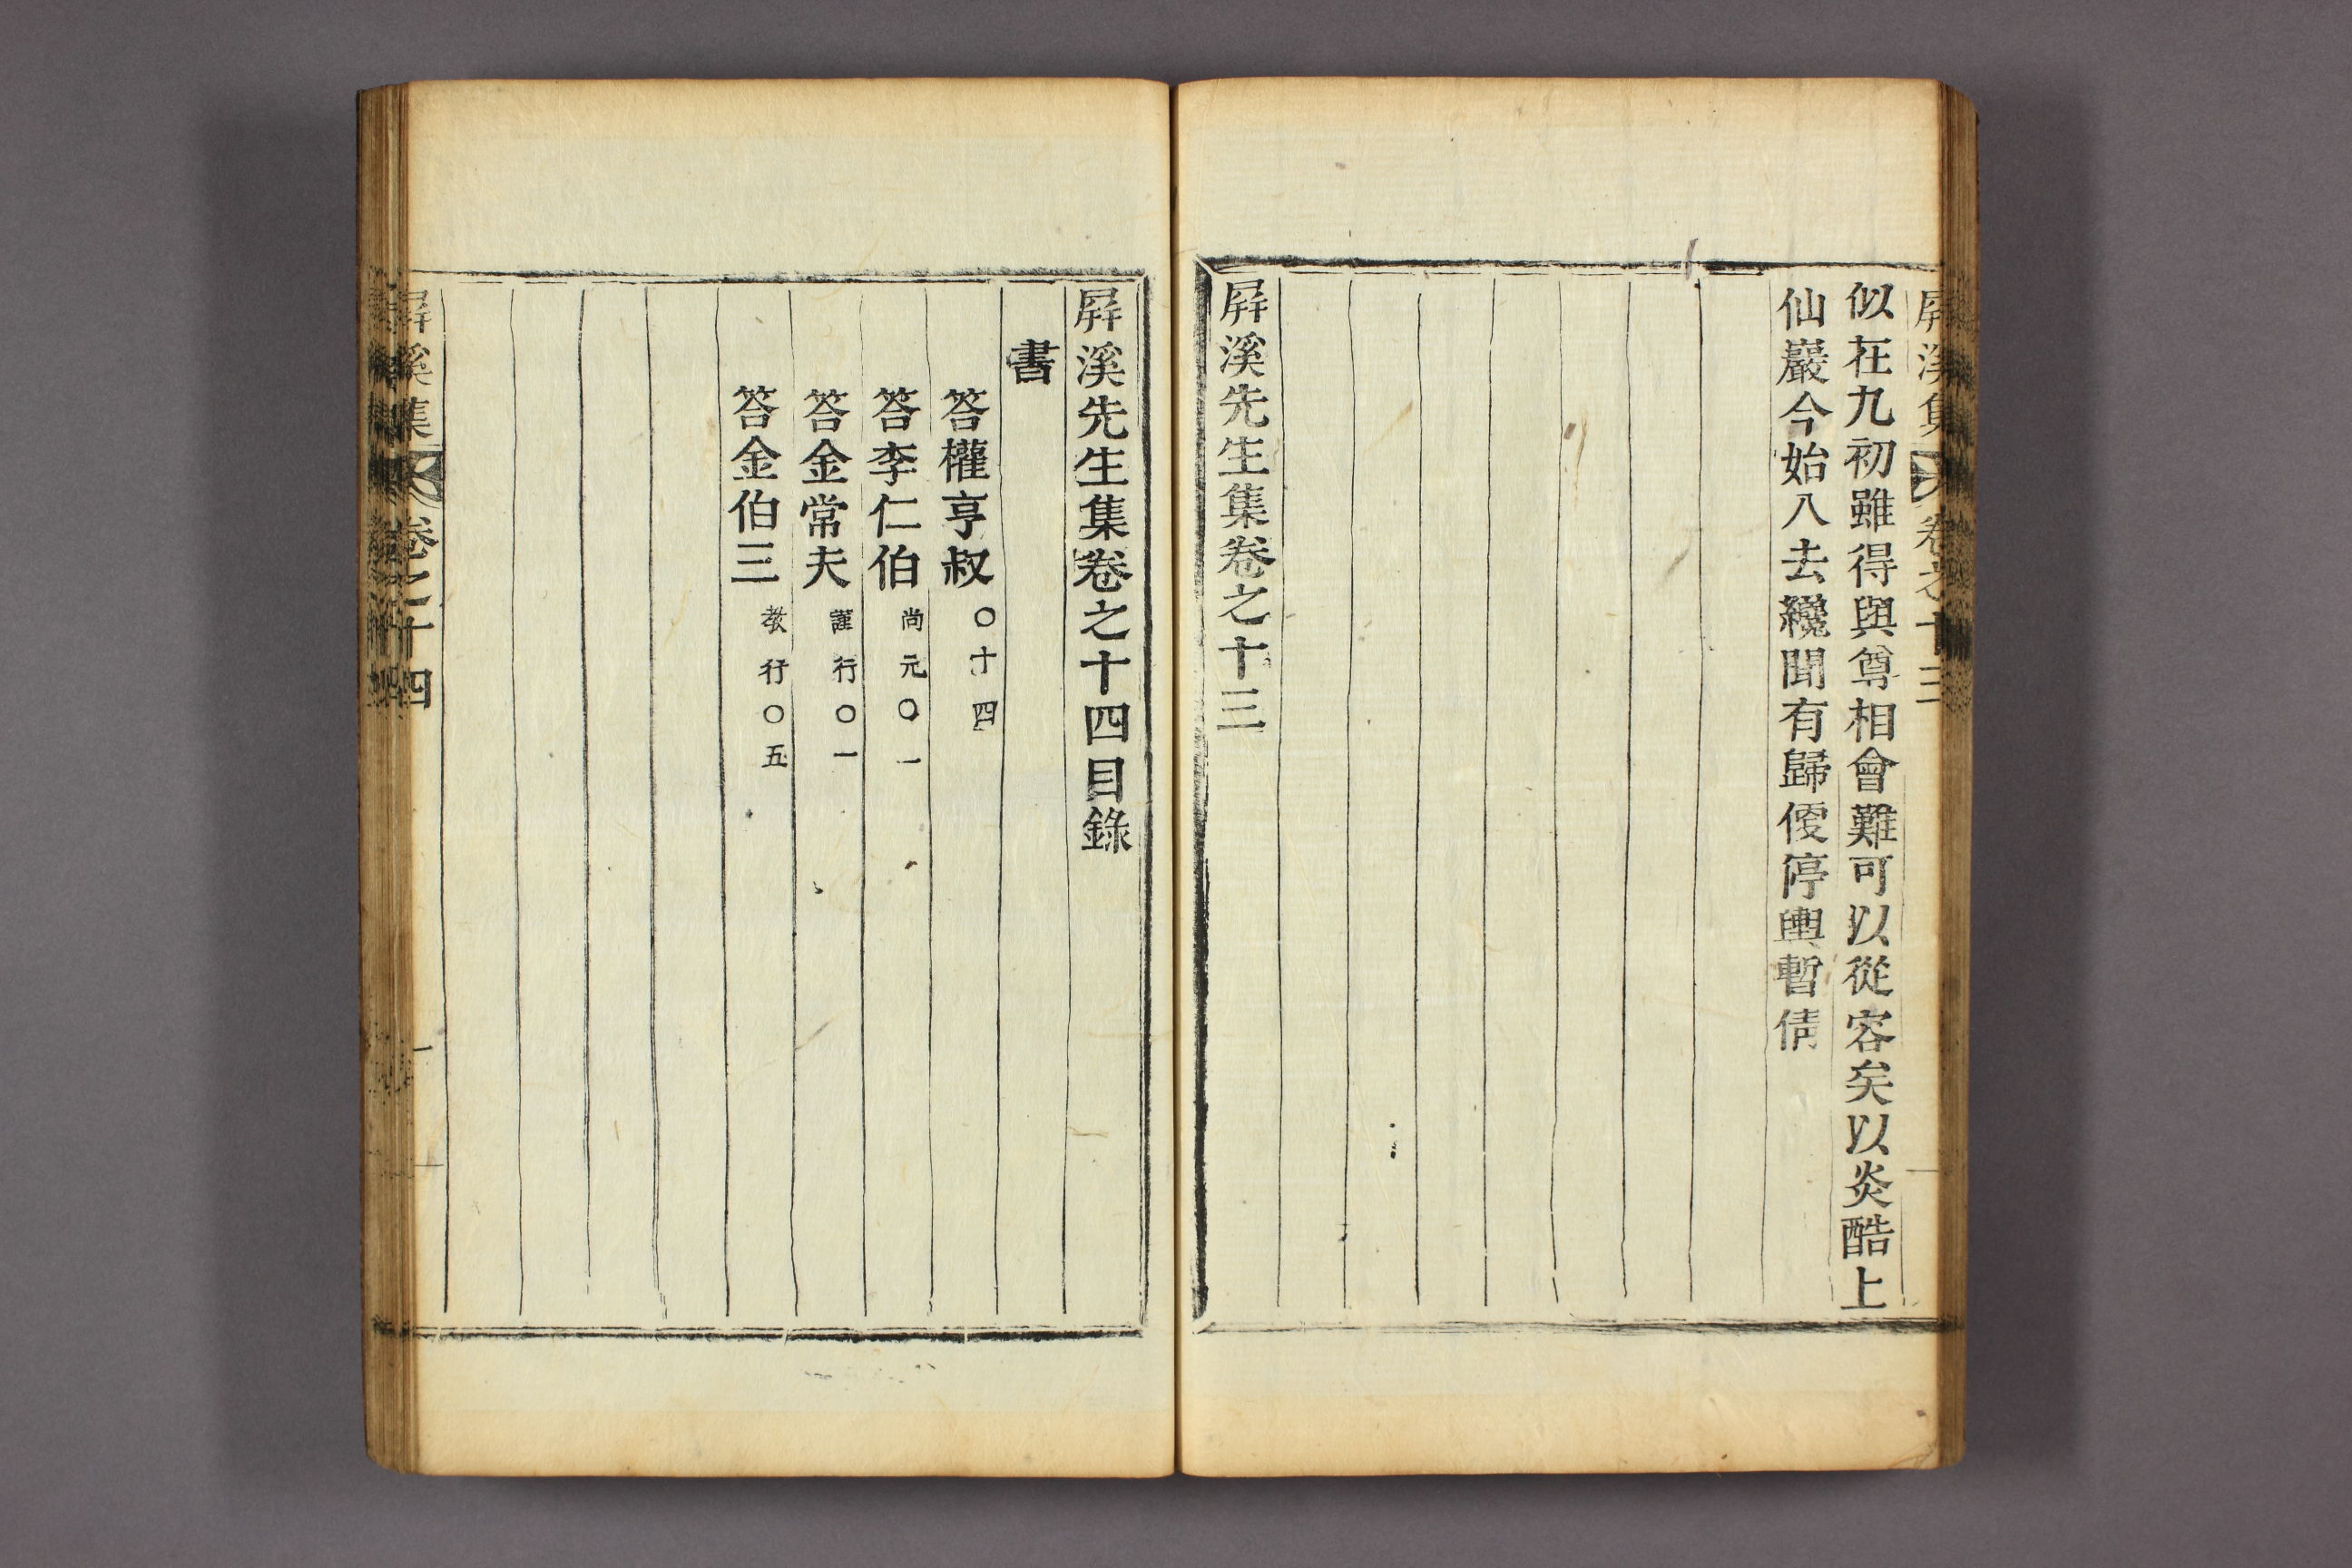 屛溪集 卷之十三
似在九初雖得與尊相會難可以從容矣以炎酷上
仙巖今始入去纔聞有歸便停輿暫倩
屛溪先生集卷之十三
屛溪先生集卷之十四目錄
書
答權亨叔〇十四
答李仁伯尚元〇一
答金常夫謹行〇一
答金伯三敎行〇五
屛溪集 卷之十四
一